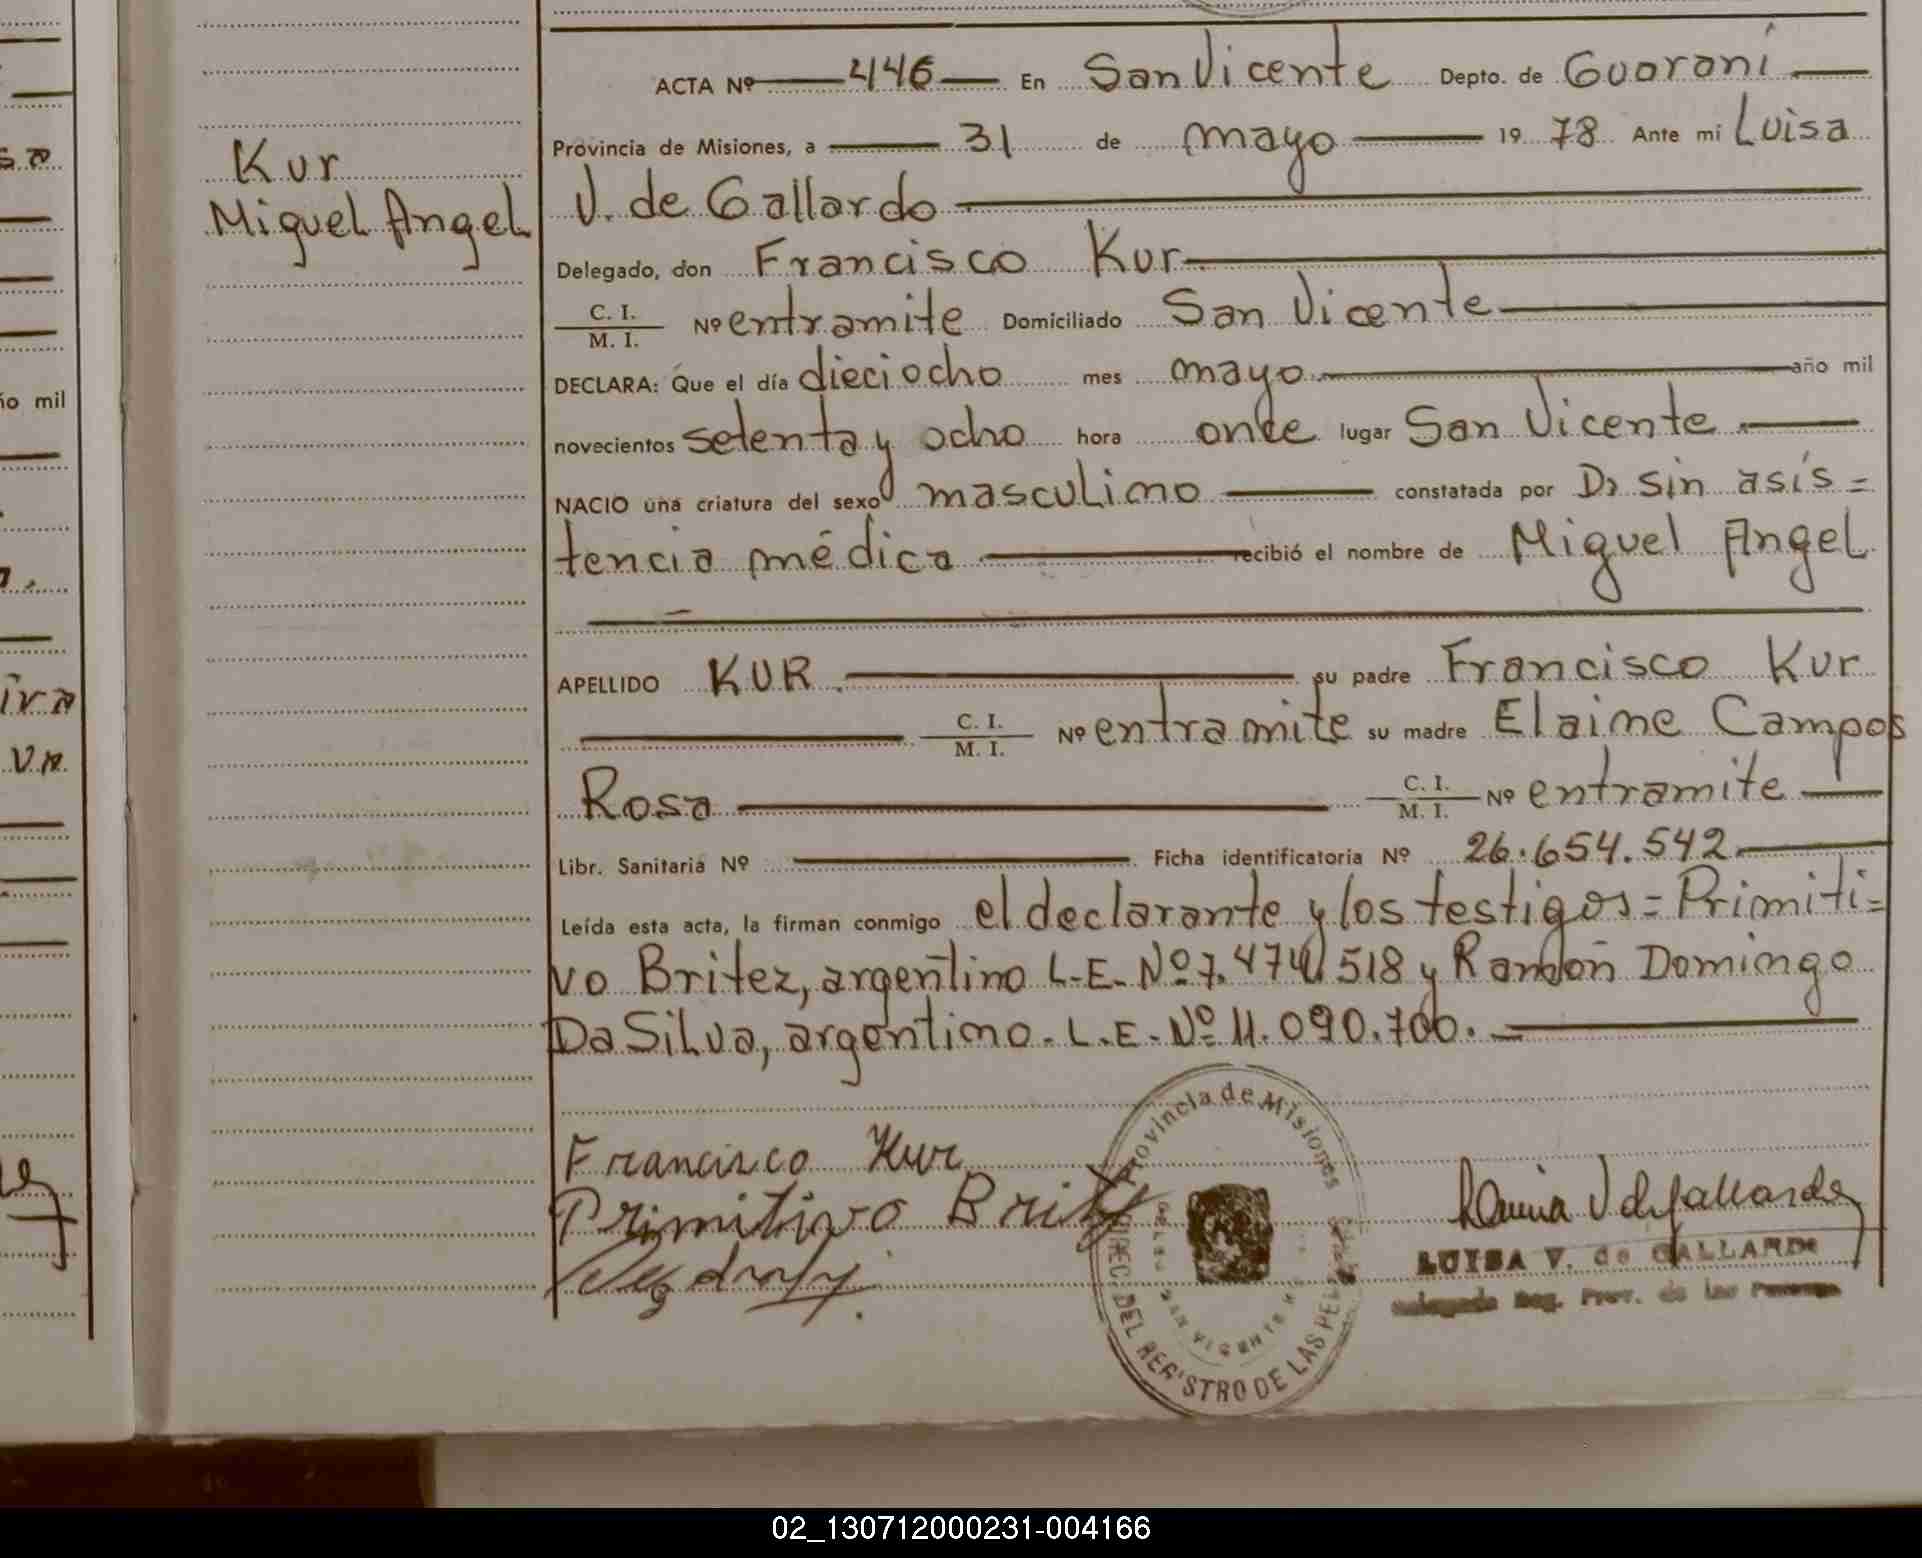 Kur
Miguel Angel
ACTA Nº 446 En San Vicente Depto. de Guaraní
Provincia de Misiones, a 31 de mayo 19 78 Ante mi Luisa
V. de Gallardo
Delegado, don Francisco Kur
C. I. / M. I. Nº entramite Domiciliado San Vicente
DECLARA: Que el día dieciocho mes mayo año mil
novecientos setenta y ocho hora once lugar San Vicente
NACIO una criatura del sexo masculino constatada por Dr sin asis=
tencia médica recibió el nombre de Miguel Angel
APELLIDO KUR su padre Francisco Kur
C. I. / M. I. Nº entramite su madre Elaine Campos
Rosa C. I. / M. I. Nº entramite
Libr. Sanitaria Nº Ficha identificatoria Nº 26.654.542
Leída esta acta, la firman conmigo el declarante y los testigos = Primiti=
vo Britez, argentino L.E. Nº 7.474.518 y Ramón Domingo
Da Silva, argentino. L.E. Nº 11.090.700.
Francisco Kur
Primitivo Britez
Provincia de Misiones
DIREC. DEL REGISTRO DE LAS PER
SAN VICENTE
LUISA V. de GALLARDO
Delegada Reg. Prov. de las Personas
ño mil
02_130712000231-004166